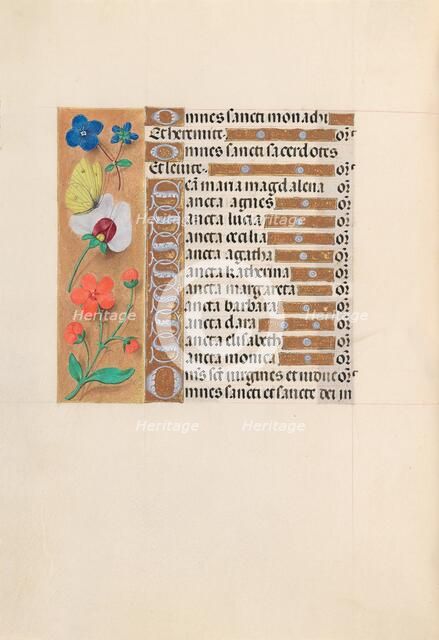 Omnes sancti monachi
Et heremite. orͬ
Omnes sancti sacerdotes
Et leuite. orͬ
Scā maria magdalena orͬ
Sancta agnes orͬ
Sancta lucia orͬ
Sancta cecilia orͬ
Sancta agatha orͬ
Sancta katherina orͬ
Sancta margareta orͬ
Sancta barbara orͬ
Sancta clara orͬ
Sancta elisabeth orͬ
Sancta monica orͬ
Omīs scē uirgines et uidue orͬ
Omnes sancti et sancte dei in
Heritage Heritage Heritage
Heritage Heritage Heritage
Heritage Heritage Heritage